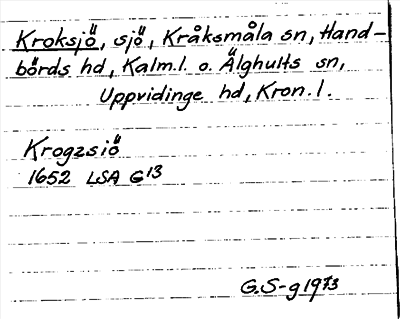 Kroksjö, sjö, Kråksmåla sn, Hand-
börds hd, Kalm.l. o. Älghults sn,
Uppvidinge hd, Kron.l.
Krogzsiö
1652 LSA G13
G.S-g 1973